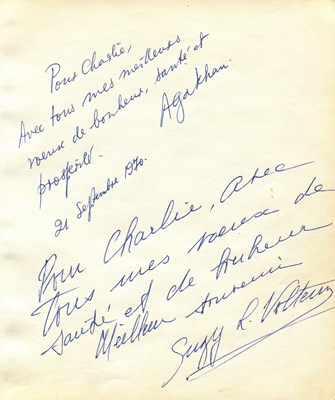 Pour Charlie,
Avec tous mes meilleurs
voeux de bonheur, santé et
prosperité. Aga Khan.
21 Septembre 1970.
Pour Charlie, avec
tous mes voeux de
santé et de bonheur
Meilleur souvenir
Suzy L. Volterra